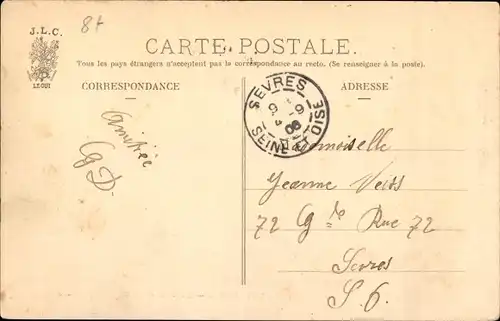 8f
J.L.C.
LEOUI
CARTE POSTALE.
Tous les pays étrangers n'acceptent pas la correspondance au recto. (Se renseigner à la poste).
CORRESPONDANCE
ADRESSE
SEVRES
SEINE & OISE
9-9
06
Amitiée
CgD.
Mademoiselle
Jeanne Veiss
72 Gde Rue 72
Sevres
S. O.